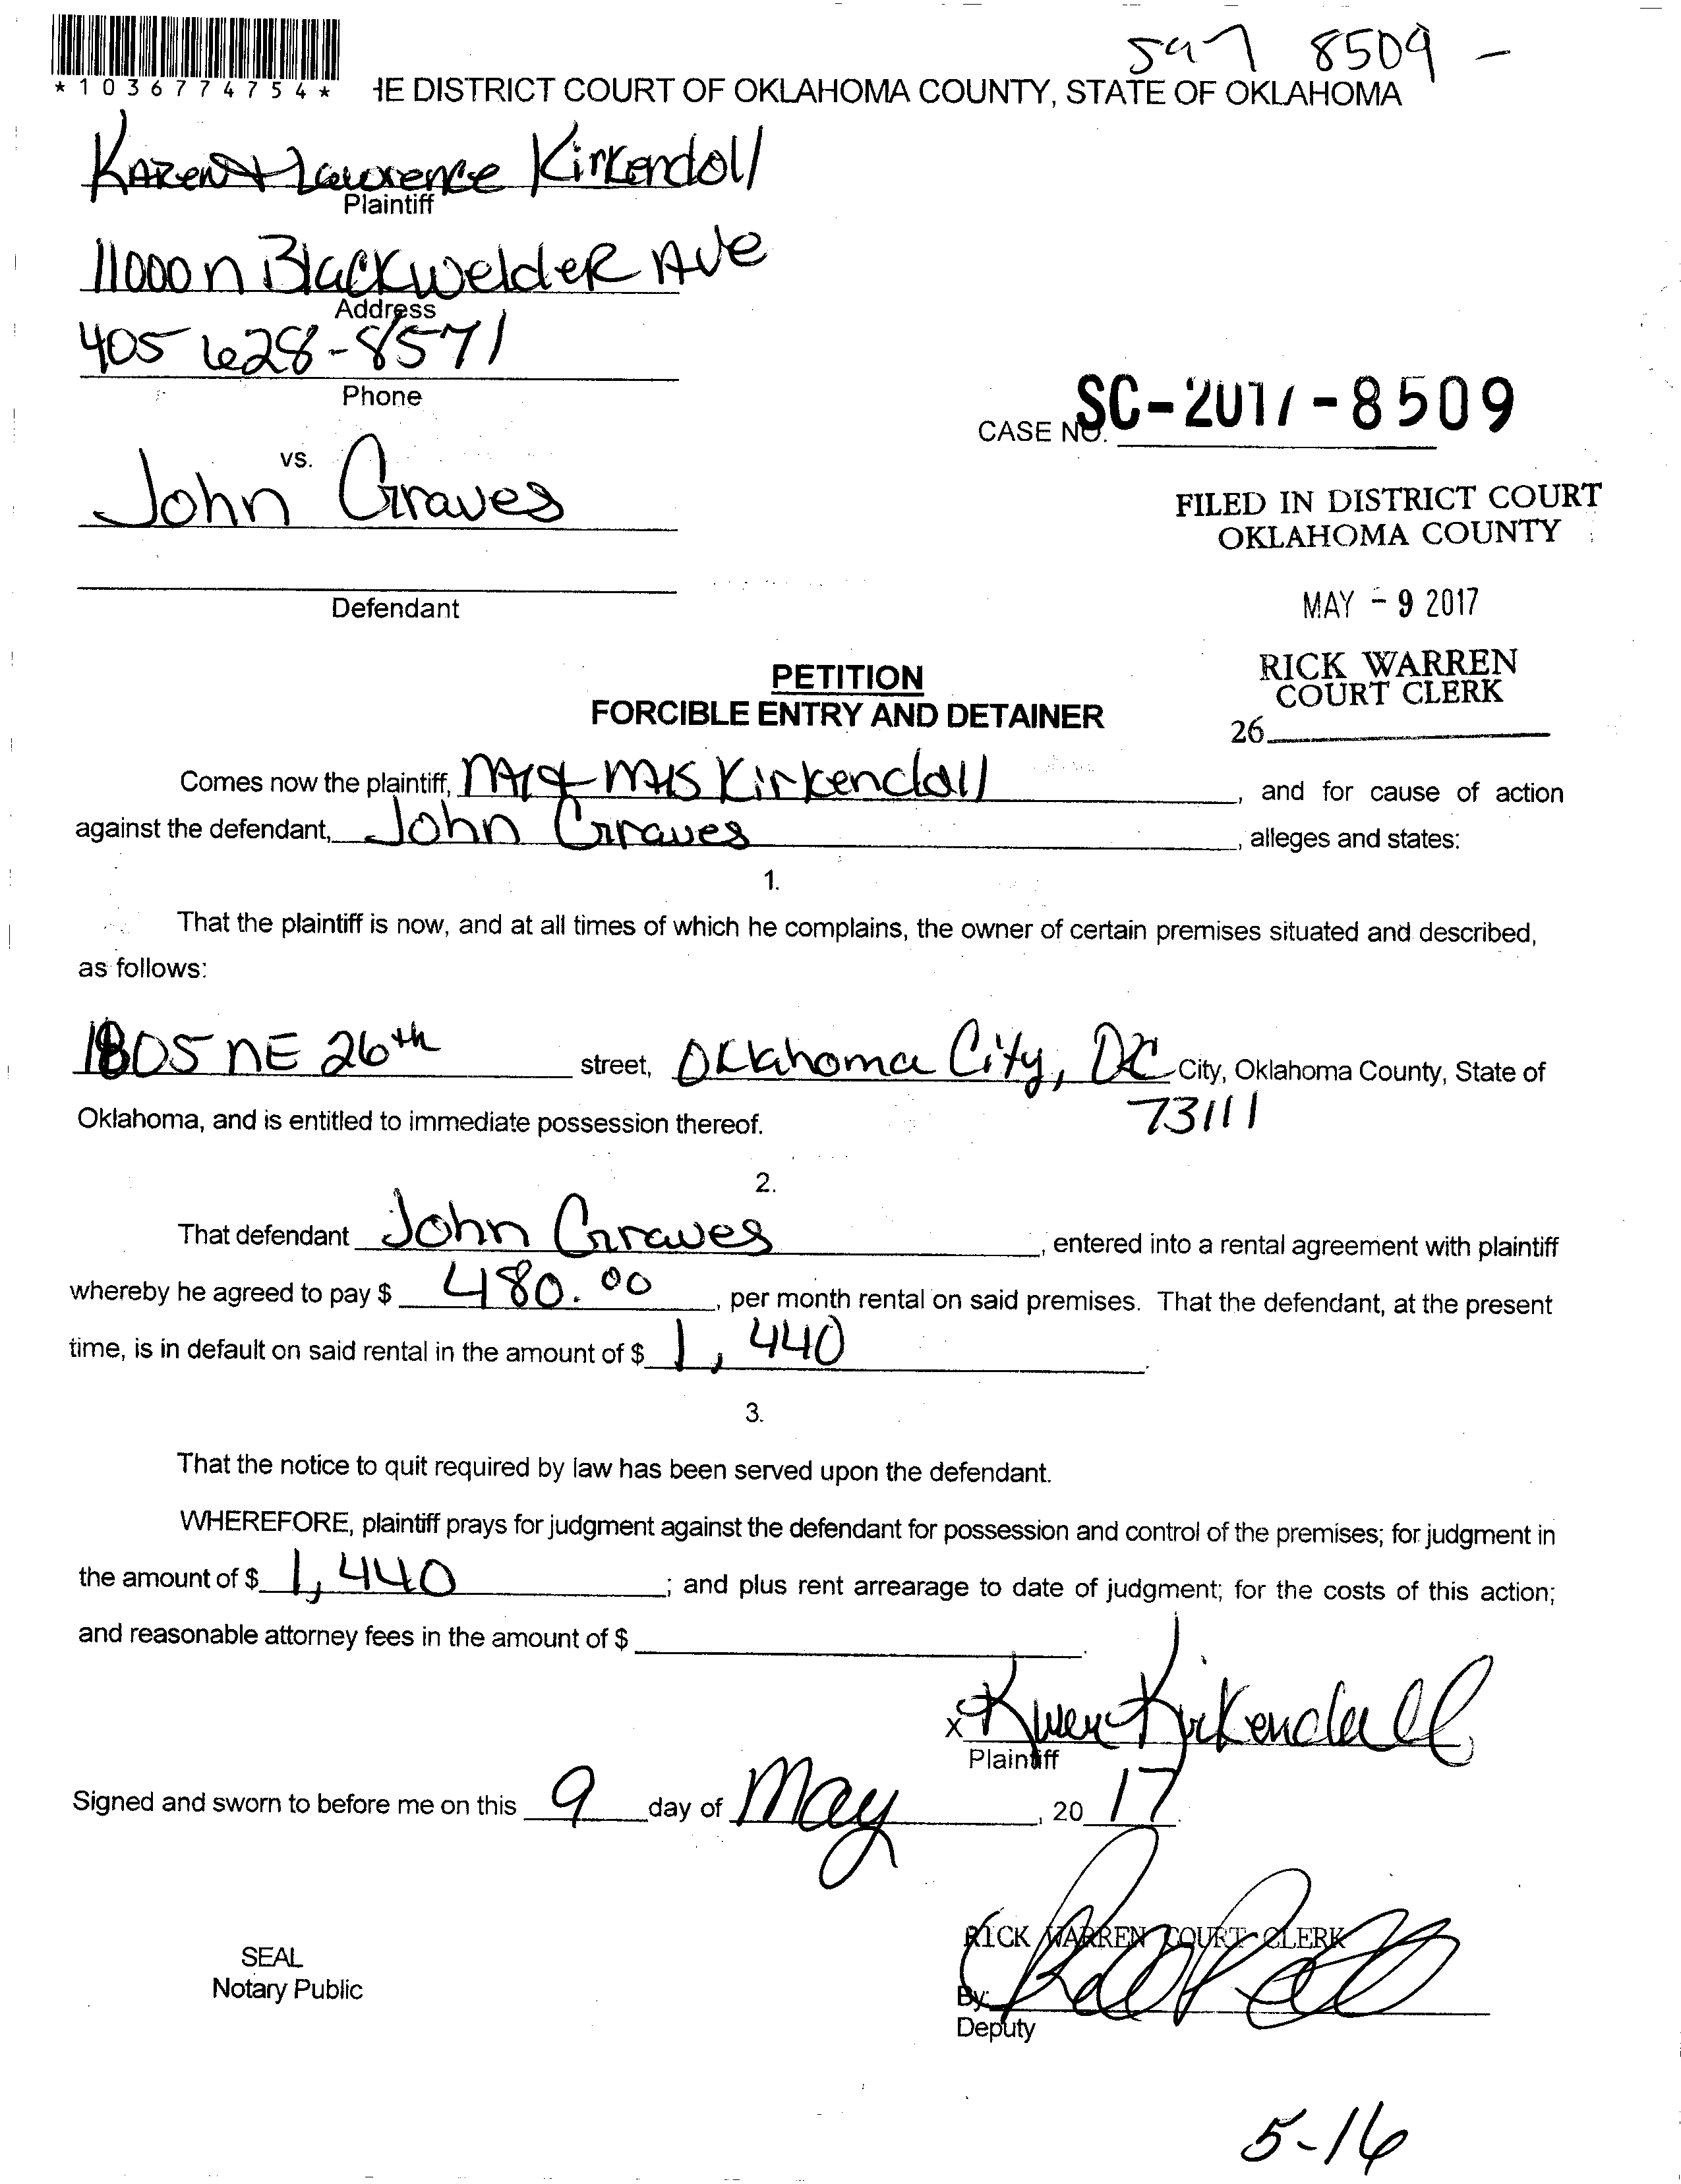 597 8509 -
*1036774754*
HE DISTRICT COURT OF OKLAHOMA COUNTY, STATE OF OKLAHOMA
Karen & Lawrence Kirkendoll
Plaintiff
11000 N Blackwelder Ave
Address
405 628-8571
Phone
CASE NO. SC-2017-8509
vs.
John Graves
FILED IN DISTRICT COURT
OKLAHOMA COUNTY
Defendant
MAY - 9 2017
RICK WARREN
COURT CLERK
26
PETITION
FORCIBLE ENTRY AND DETAINER
Comes now the plaintiff, Mr & Mrs Kirkendall, and for cause of action
against the defendant, John Graves, alleges and states:
1.
That the plaintiff is now, and at all times of which he complains, the owner of certain premises situated and described,
as follows:
1805 NE 26th street, Oklahoma City, City, Oklahoma County, State of
73111
Oklahoma, and is entitled to immediate possession thereof.
2.
That defendant John Graves, entered into a rental agreement with plaintiff
whereby he agreed to pay $ 480.00, per month rental on said premises. That the defendant, at the present
time, is in default on said rental in the amount of $ 1,440.
3.
That the notice to quit required by law has been served upon the defendant.
WHEREFORE, plaintiff prays for judgment against the defendant for possession and control of the premises; for judgment in
the amount of $ 1,440; and plus rent arrearage to date of judgment; for the costs of this action;
and reasonable attorney fees in the amount of $
x Karen Kirkendall
Plaintiff
Signed and sworn to before me on this 9 day of May, 20 17.
RICK WARREN COURT CLERK
SEAL
Notary Public
By:
Deputy
5-16